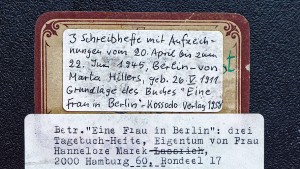 3 Schreibhefte mit Aufzeich-
nungen vom 20. April bis zum
22. Juni 1945, Berlin - von
Marta Hillers, geb. 26. V. 1911
Grundlage des Buches "Eine
Frau in Berlin" - Kossodo Verlag 1959
Betr. "Eine Frau in Berlin": drei
Tagebuch-Hefte, Eigentum von Frau
Hannelore Marek
2000 Hamburg 60, Rondeel 17